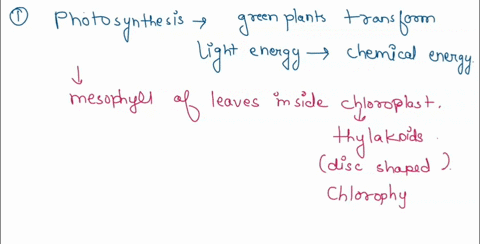 ① Photosynthesis → green plants transform
light energy → chemical energy.
↓
mesophyll of leaves inside chloroplast.
↓
thylakoids
(disc shaped).
Chlorophy